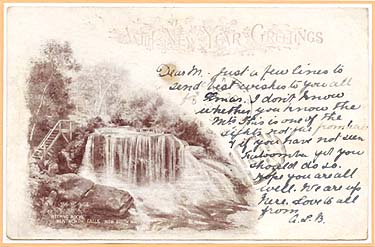 With New Year Greetings
Dear M. Just a few lines to
send best wishes to you all
for Xmas. I don't know
whether you know the
Mts This is one of the
sights not far from here
& if you have not seen
Katoomba yet you
should do so.
Hope you are all
well. We are up
here. Love to all
from
WEEPING ROCK,
WENTWORTH FALLS, NEW SOUTH WALES